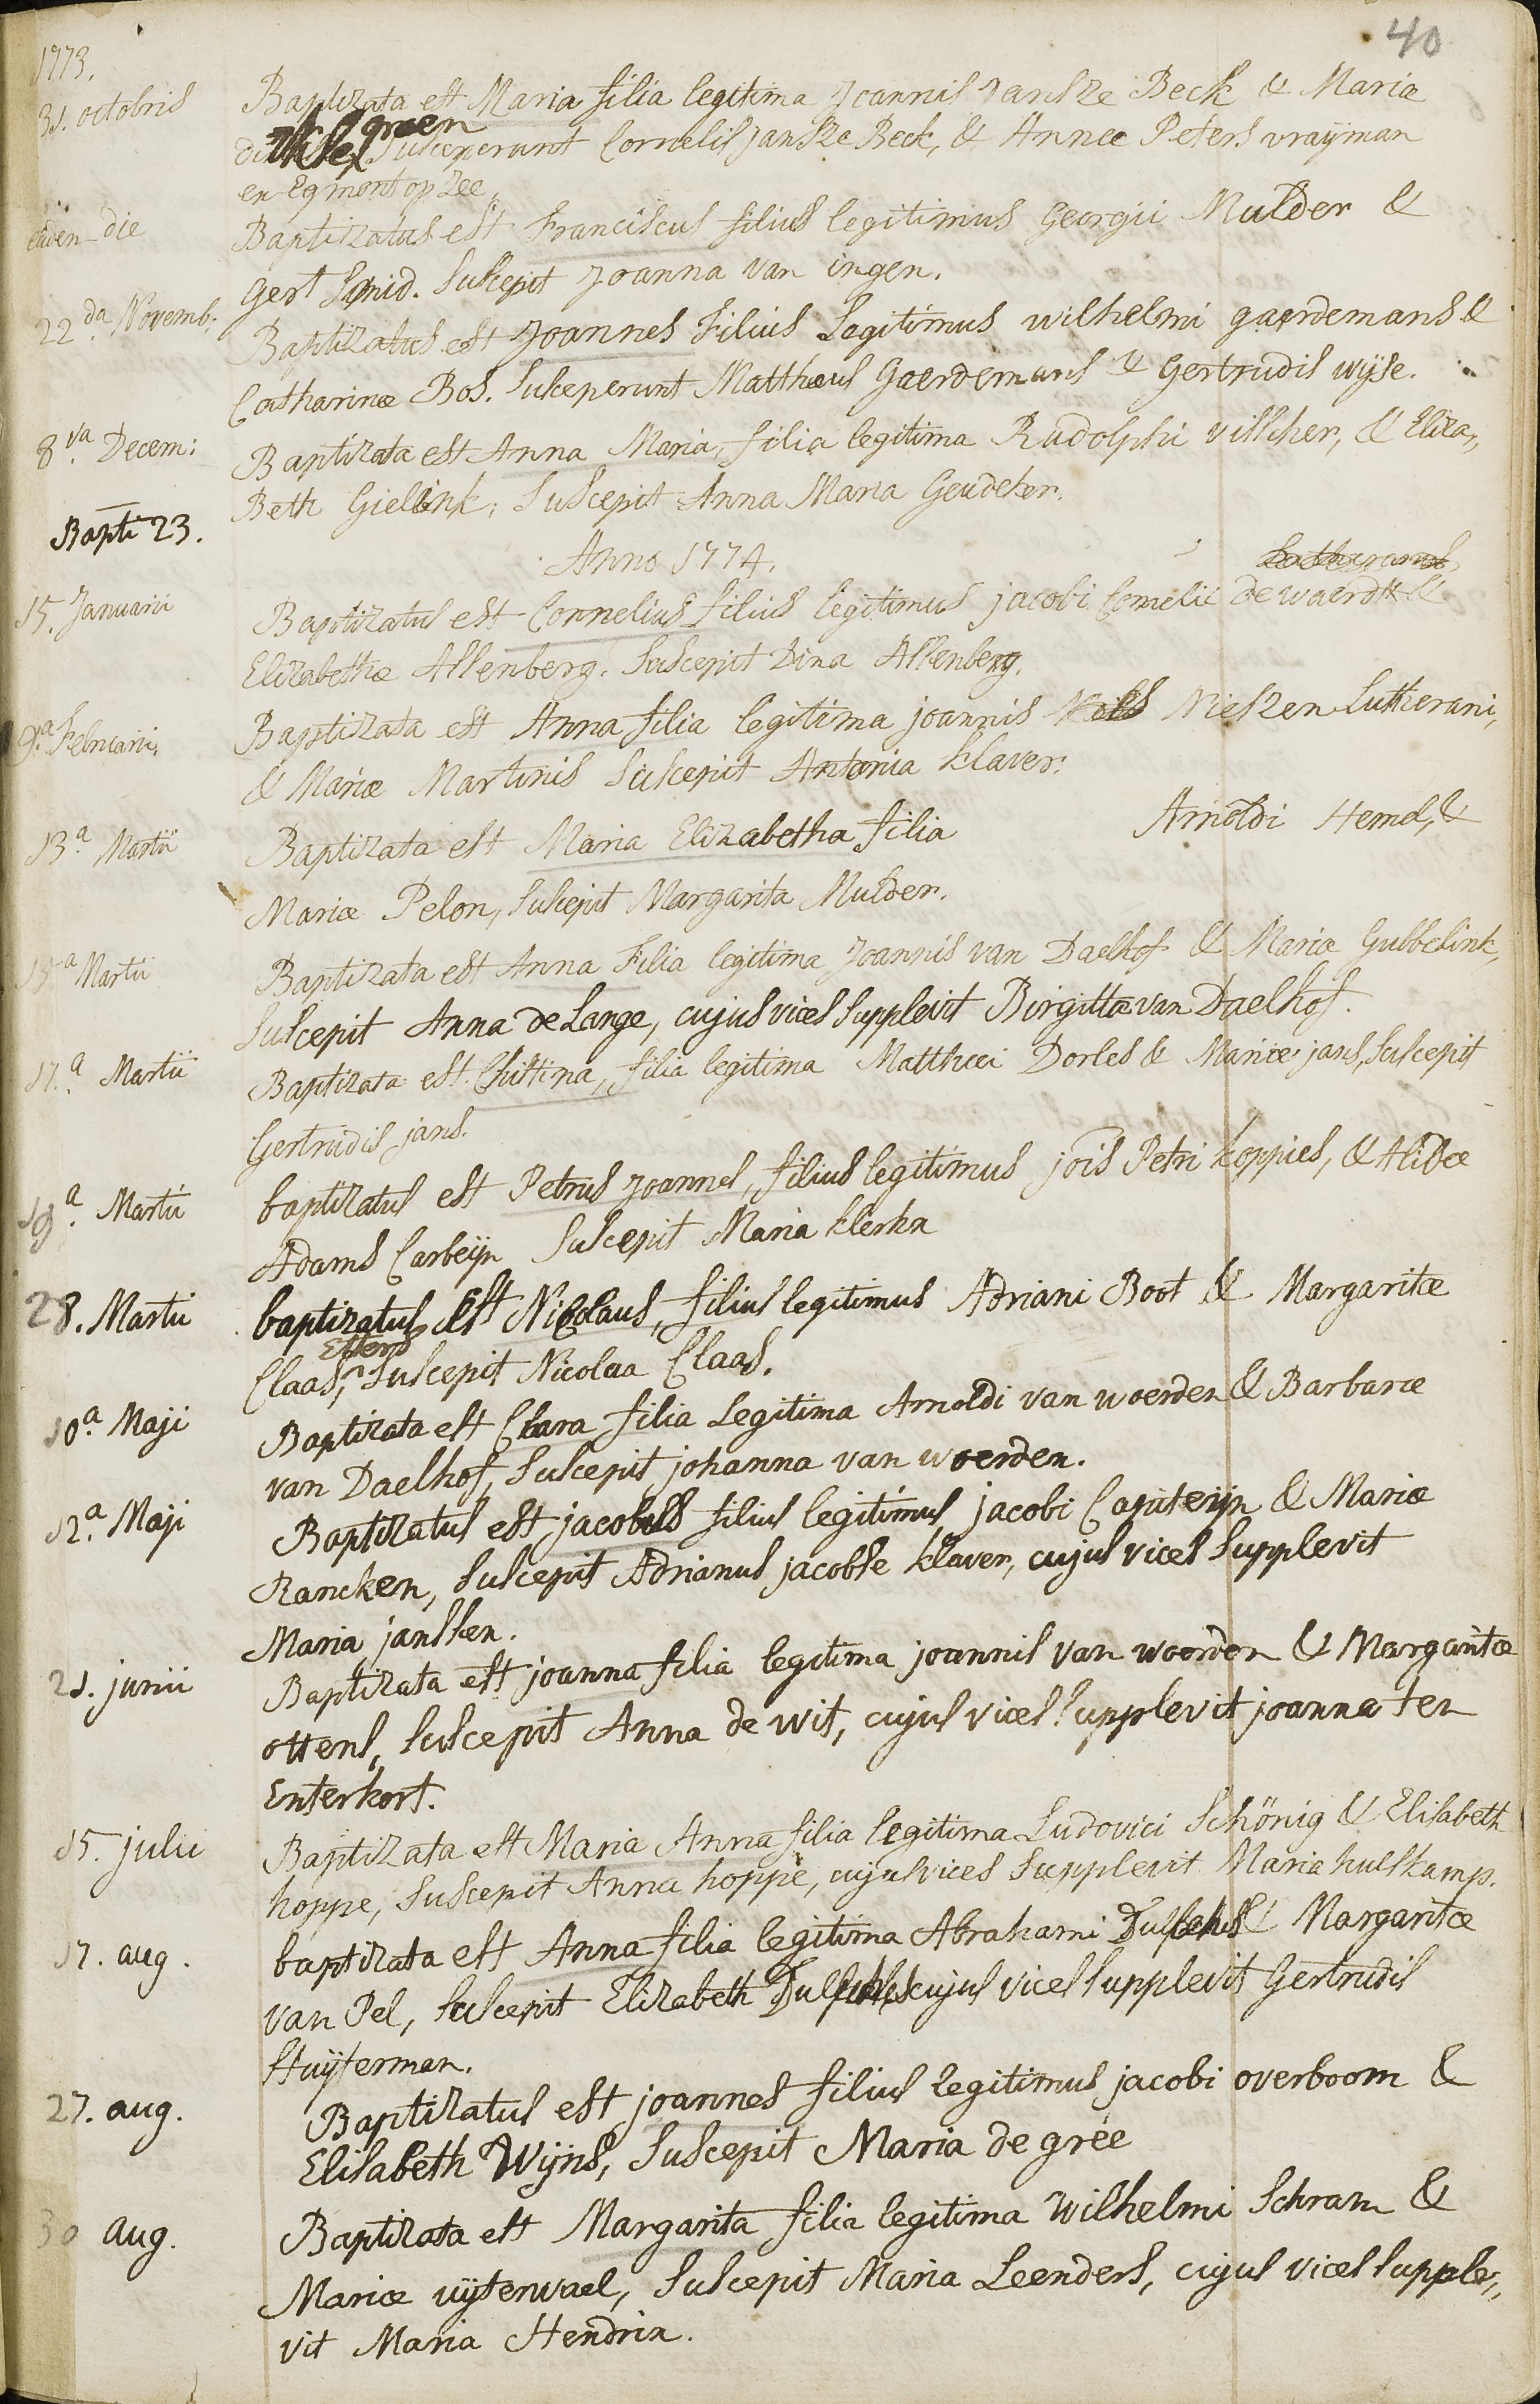 40
1773.
31. octobris Baptizata est Maria filia legitima Joannis Jansze Beck & Maria
groen
Susceperunt Cornelis Jansze Beck, & Annæ Peters vraÿman
ex Egmont op Zee,
eâdem die Baptizatus est Franciscus filius legitimus Georgii Mulder &
Gert Smid. Suscepit Joanna van ingen.
22da Novemb: Baptizatus est Joannes Filius Legitimus wilhelmi gaerdemans &
Catharinæ Bos. Susceperunt Matthæus Gaerdemans & Gertrudis wijse.
8va Decem: Baptizata est Anna Maria, filia legitima Rudolphi visscher, & Eliza„
Beth Gielink; Suscepit Anna Maria Geudeker.
Bapti 23.
Anno 1774.
15. Januarii Baptizatus est Cornelius filius legitimus jacobi Cornelii de waerdt &
Elizabethæ Allenberg. Suscepit Dina Allenberg.
9.a Februarii, Baptizata est Anna filia legitima joannis Nielzen Lutherani,
& Mariæ Martinis Suscepit Antonia klaver.
13.a Martii Baptizata est Maria Elizabetha filia Arnoldi Hemel, &
Mariæ Pelon, Suscepit Margarita Mulder.
15a Martii Baptizata est Anna Filia legitima Joannis van Daelhof & Mariæ Gubbelink,
Suscepit Anna de Lange, cujus vices Supplevit Birgitta van Daelhof.
17.a Martii Baptizata est Christina, filia legitima Matthæi Dorles & Mariæ jans, Suscepit
Gertrudis jans.
19.a Martii baptizatus est Petrus Joannes, filius legitimus jois Petri koppies, & Alidæ
Adams Carbeijn Suscepit Maria klerkx
28. Martii baptizatus est Nicolaus, filius legitimus Adriani Boot & Margaritæ
Effens
Claas, Suscepit Nicolaa Claas.
10.a Maji Baptizata est Clara filia Legitima Arnoldi van woerden & Barbaræ
van Daelhof, Suscepit johanna van woerden.
12.a Maji Baptizatus est jacobus filius legitimus jacobi Capiteijn & Mariæ
Rancken, Suscepit Adrianus jacobse klaver, cujus vices Supplevit
Maria janssen.
21. junii Baptizata est joanna filia legitima joannis van woerden & Margaritæ
ottens, Suscepit Anna de wit, cujus vices Supplevit joanna ter
Enterkort.
15. julii Baptizata est Maria Anna filia legitima Ludovici Schönig & Elisabeth
hoppe, Suscepit Anna hoppe, cujus vices Supplevit Maria hulskamp.
17. aug. baptizata est Anna filia legitima Abrahami & Margaritæ
van Pel, Suscepit Elizabeth cujus vices Supplevit Gertrudis
Huijterman.
27. aug. Baptizatus est joannes filius legitimus jacobi overboom &
Elisabeth Wijns, Suscepit Maria de grée
30 aug. Baptizata est Margarita filia legitima Wilhelmi Schram &
Mariæ uijterwael, Suscepit Maria Leenders, cujus vices Supple„
vit Maria Hendrix.